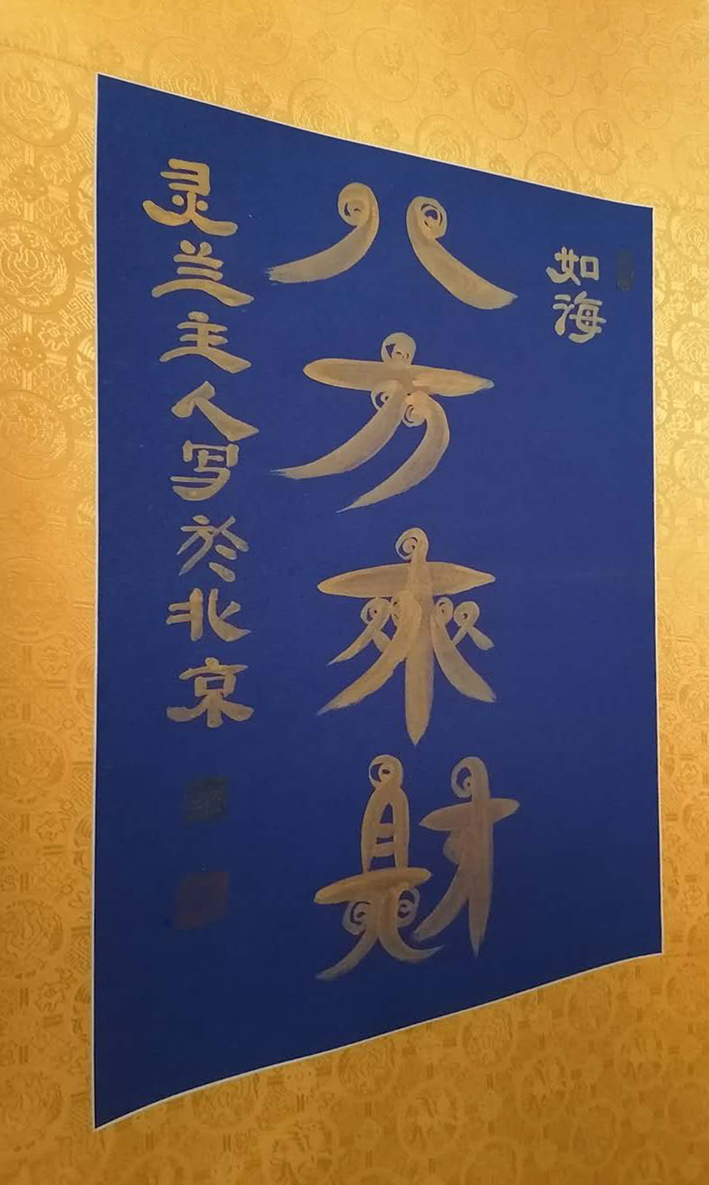 如海
八方來財
灵兰主人写於北京